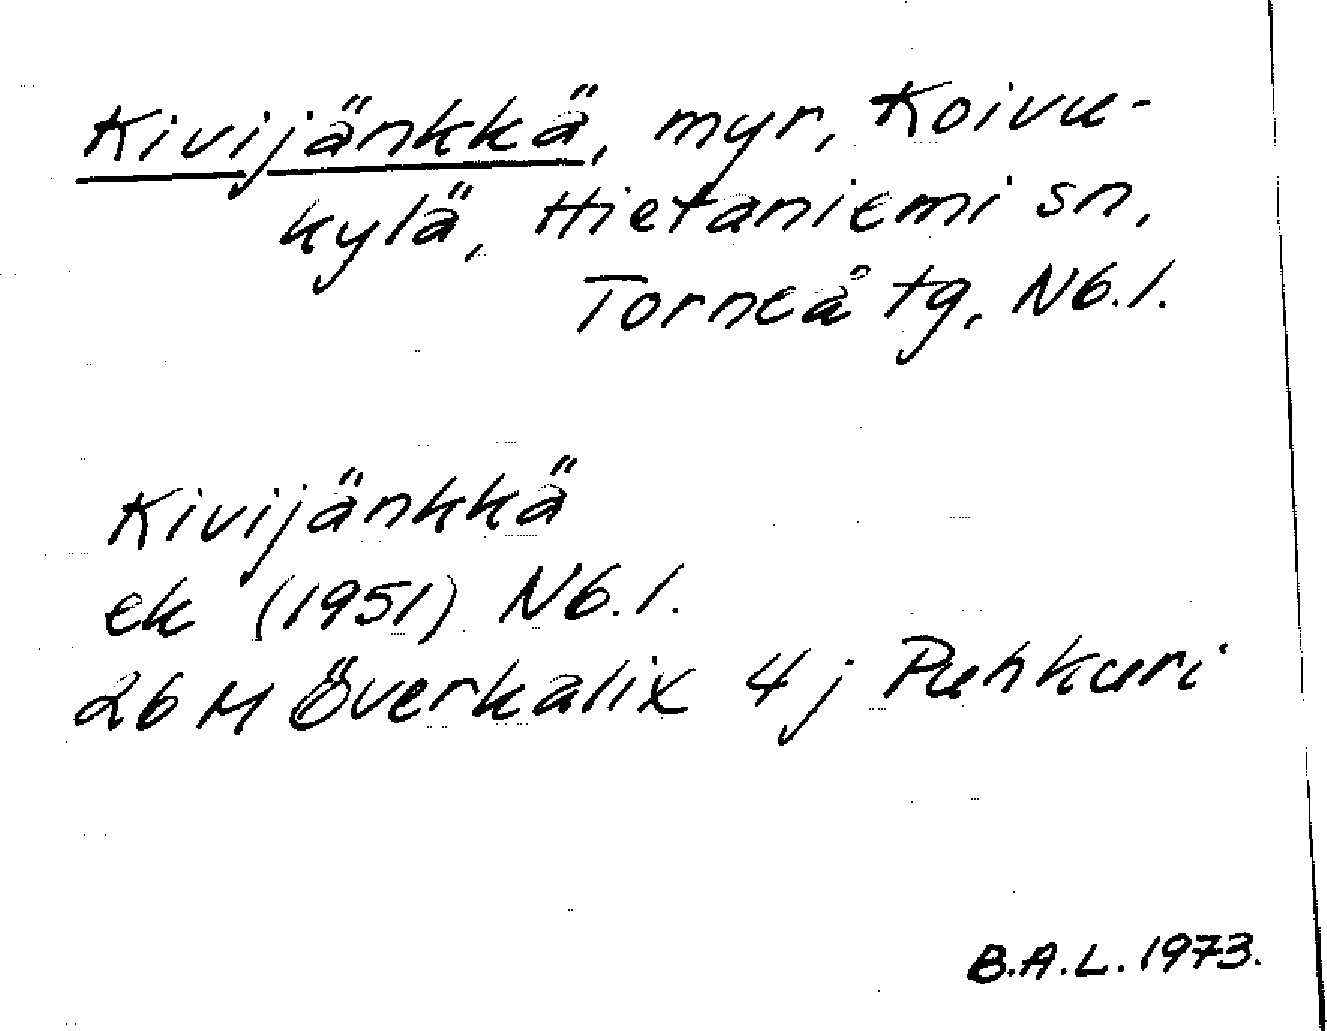 Kivijänkkä, myr, Koivu-
kylä, Hietaniemi sn,
Torneå tg, Nb.l.
Kivijänkkä
ek (1951) Nb.l.
26 M Överkalix 4 j Puhkuri
B.A.L. 1973.